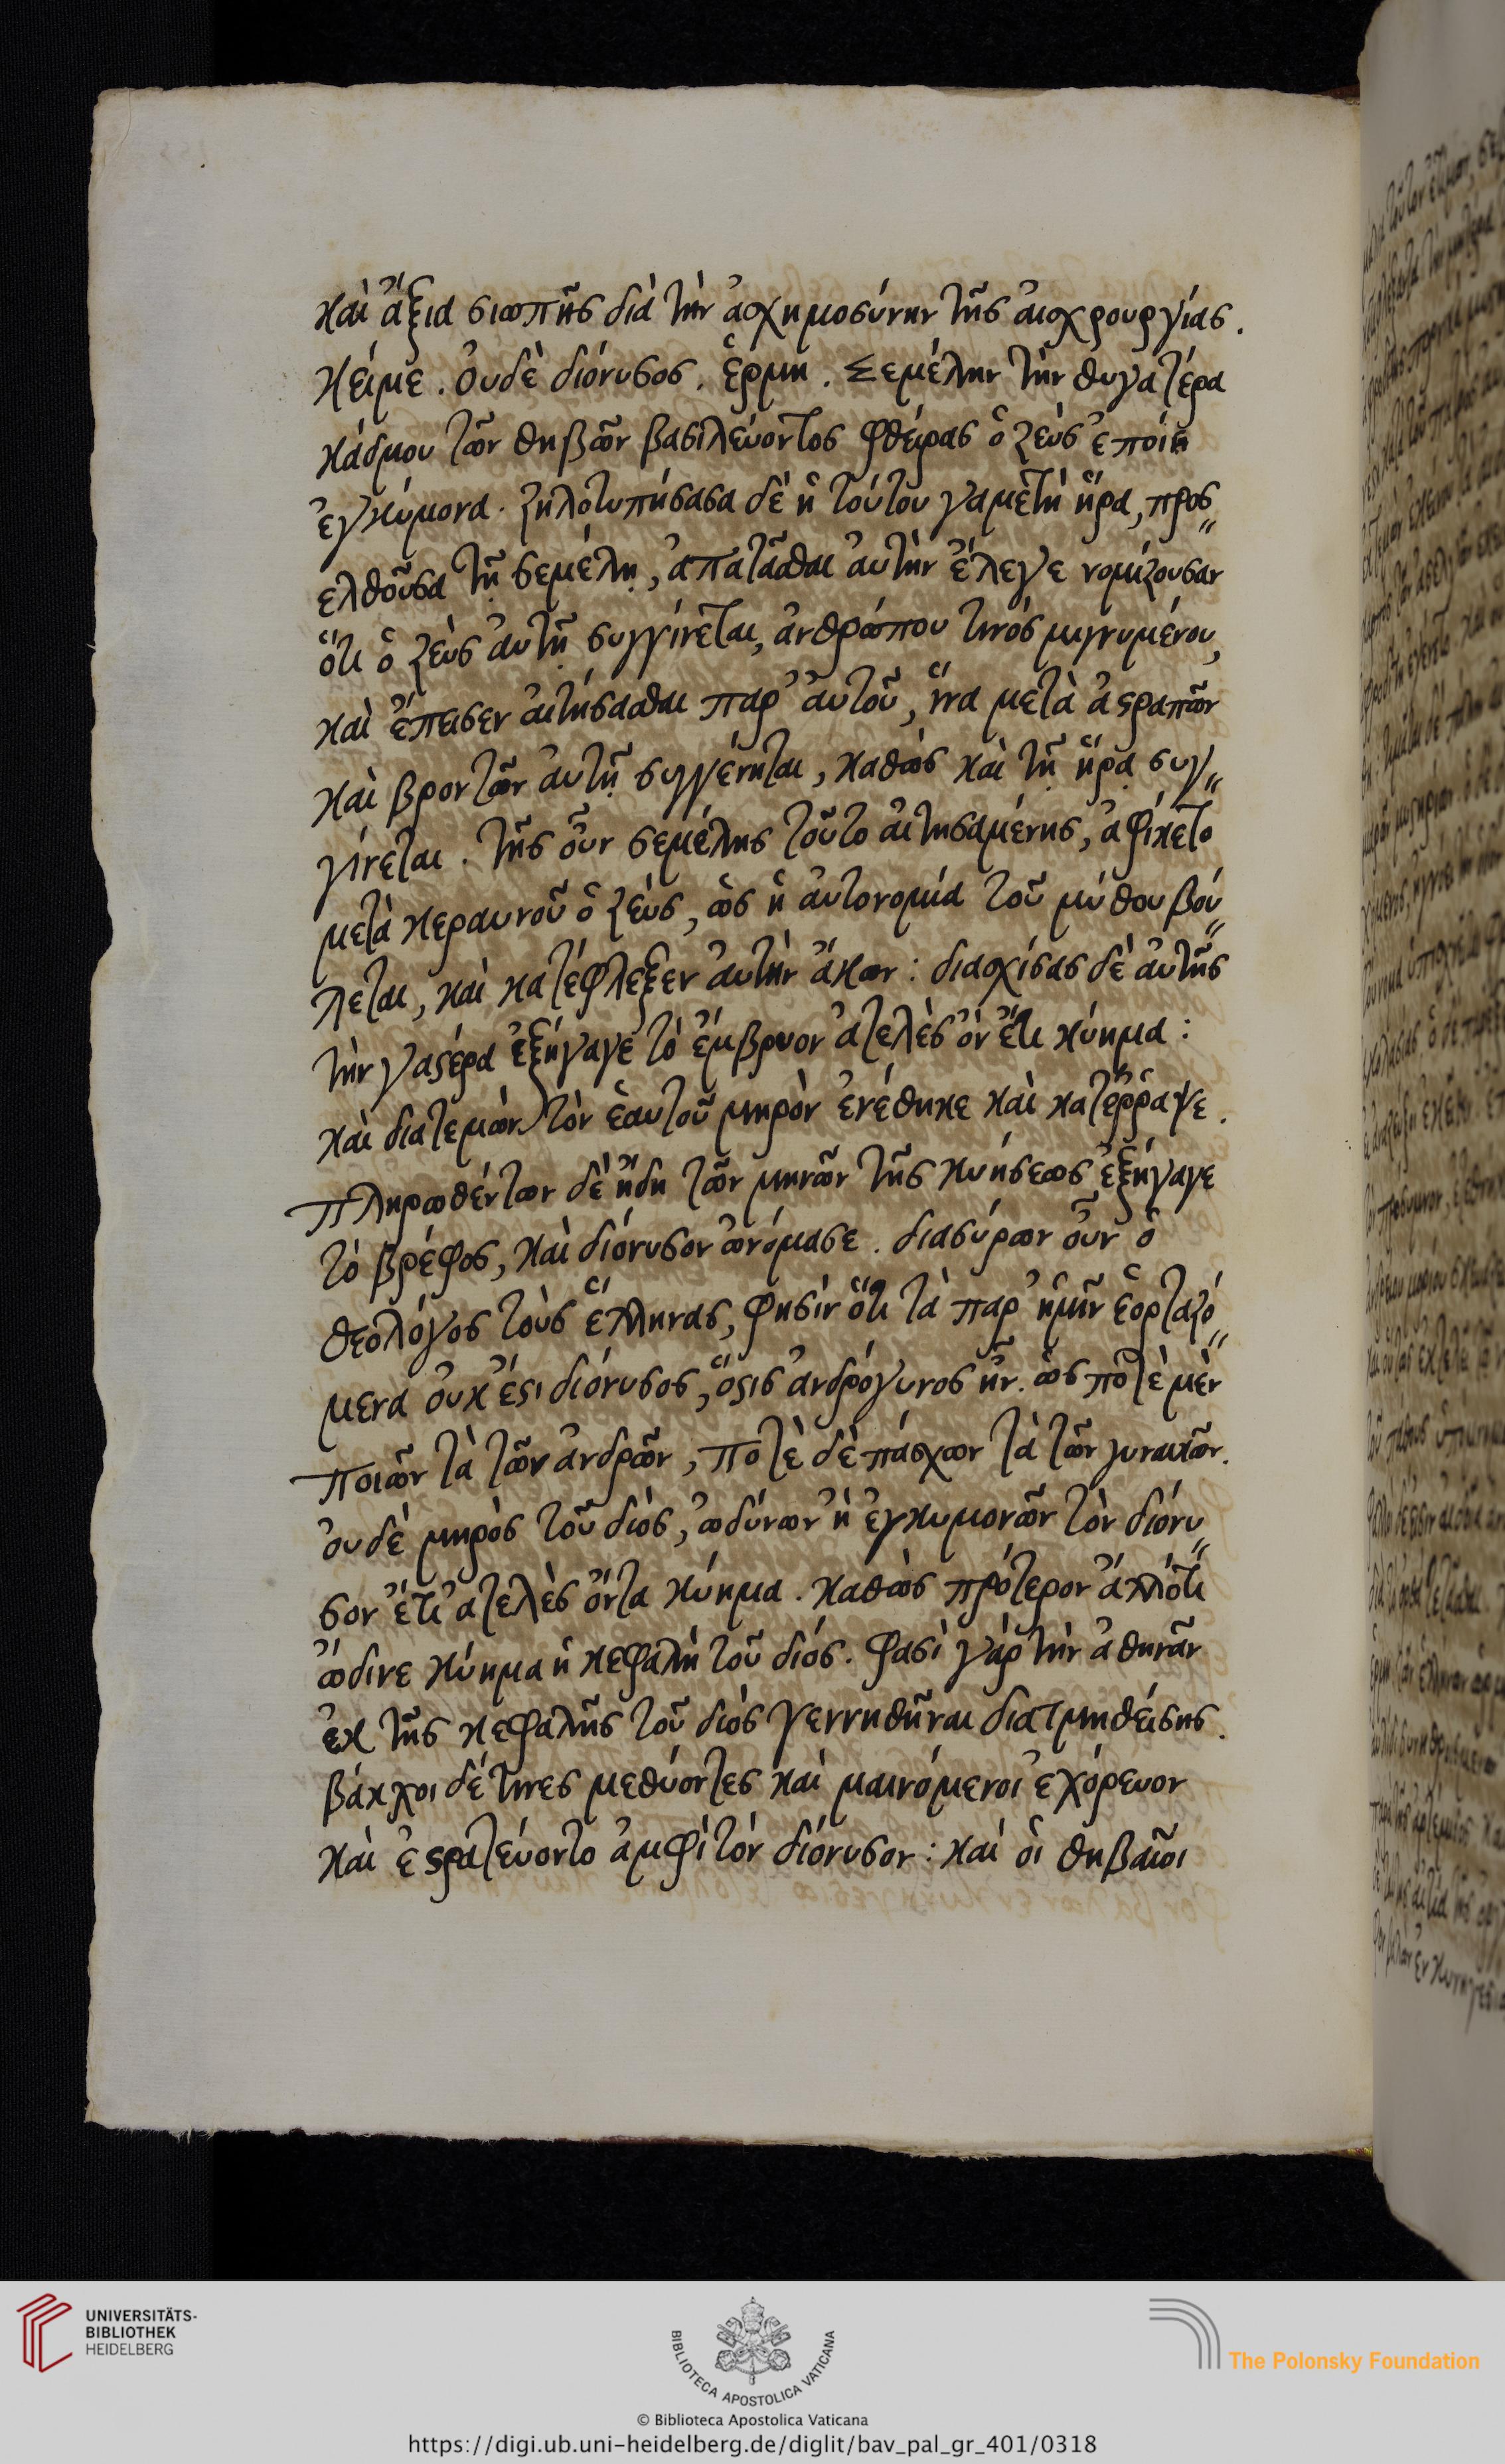 καὶ ἄξια σιωπῆς διὰ τὴν ἀσχημοσύνην τῆς αἰσχρουργίας.
κείμε. Οὐδὲ διόνυσος. ἑρμη. Σεμέλην τὴν θυγατέρα
κάδμου τῶν θηβῶν βασιλεύοντος φθείρας ὁ ζεὺς ἐποίη
ἐγκύμονα. ζηλοτυπήσασα δὲ ἡ τούτου γαμετὴ ἥρα, προσ
ελθοῦσα τῇ σεμέλῃ, ἀπατᾶσθαι αὐτὴν ἔλεγε νομίζουσαν
ὅτι ὁ ζεὺς αὐτῇ συγγίνεται, ἀνθρώπου τινός μιγνυμένου,
καὶ ἔπεισεν αἰτήσασθαι παρ' αὐτοῦ, ἵνα μετὰ ἀστραπῶν
καὶ βροντῶν αὐτῇ συγγένηται, καθὼς καὶ τῇ ἥρᾳ συγ
γίνεται. τῆς οὖν σεμέλης τοῦτο αἰτησαμένης, ἀφίκετο
μετὰ κεραυνοῦ ὁ ζεὺς, ὡς ἡ αὐτονομία τοῦ μύθου βού
λεται, καὶ κατέφλεξεν αὐτὴν ἄκων: διασχίσας δὲ αὐτῆς
τὴν γαστέρα ἐξήγαγε τὸ ἔμβρυον ἀτελὲς ὂν ἔτι κύημα:
καὶ διατεμὼν τὸν ἑαυτοῦ μηρὸν ἐνέθηκε καὶ κατέῤῥαψε.
Πληρωθέντων δὲ ἤδη τῶν μηνῶν τῆς κυήσεως ἐξήγαγε
τὸ βρέφος, καὶ διόνυσον ὠνόμασε. διασύρων οὖν ὁ
θεολόγος τοὺς ἕλληνας, φησὶν ὅτι τὰ παρ' ἡμῖν ἑορταζό
μενα οὐκ ἔστι διόνυσος, ὅστις ἀνδρόγυνος ἦν. ὡς ποτὲ μὲν
ποιῶν τὰ τῶν ἀνδρῶν, ποτὲ δὲ πάσχων τὰ τῶν γυναικῶν.
οὐδὲ μηρὸς τοῦ διὸς, ὠδύνων ἢ ἐγκυμονῶν τὸν διόνυ
σον ἔτι ἀτελὲς ὄντα κύημα. καθὼς πρότερον ἄλλότι
ὤδινε κύημα ἡ κεφαλὴ τοῦ διός. φασὶ γὰρ τὴν ἀθηνᾶν
ἐκ τῆς κεφαλῆς τοῦ διὸς γεννηθῆναι διατμηθείσης.
βάκχοι δέ τινες μεθύοντες καὶ μαινόμενοι ἐχόρευον
καὶ ἐστρατεύοντο ἀμφὶ τὸν διόνυσον: καὶ οἱ θηβαῖοι
UNIVERSITÄTS-
BIBLIOTHEK
HEIDELBERG
BIBLIOTECA APOSTOLICA VATICANA
The Polonsky Foundation
© Biblioteca Apostolica Vaticana
https://digi.ub.uni-heidelberg.de/diglit/bav_pal_gr_401/0318